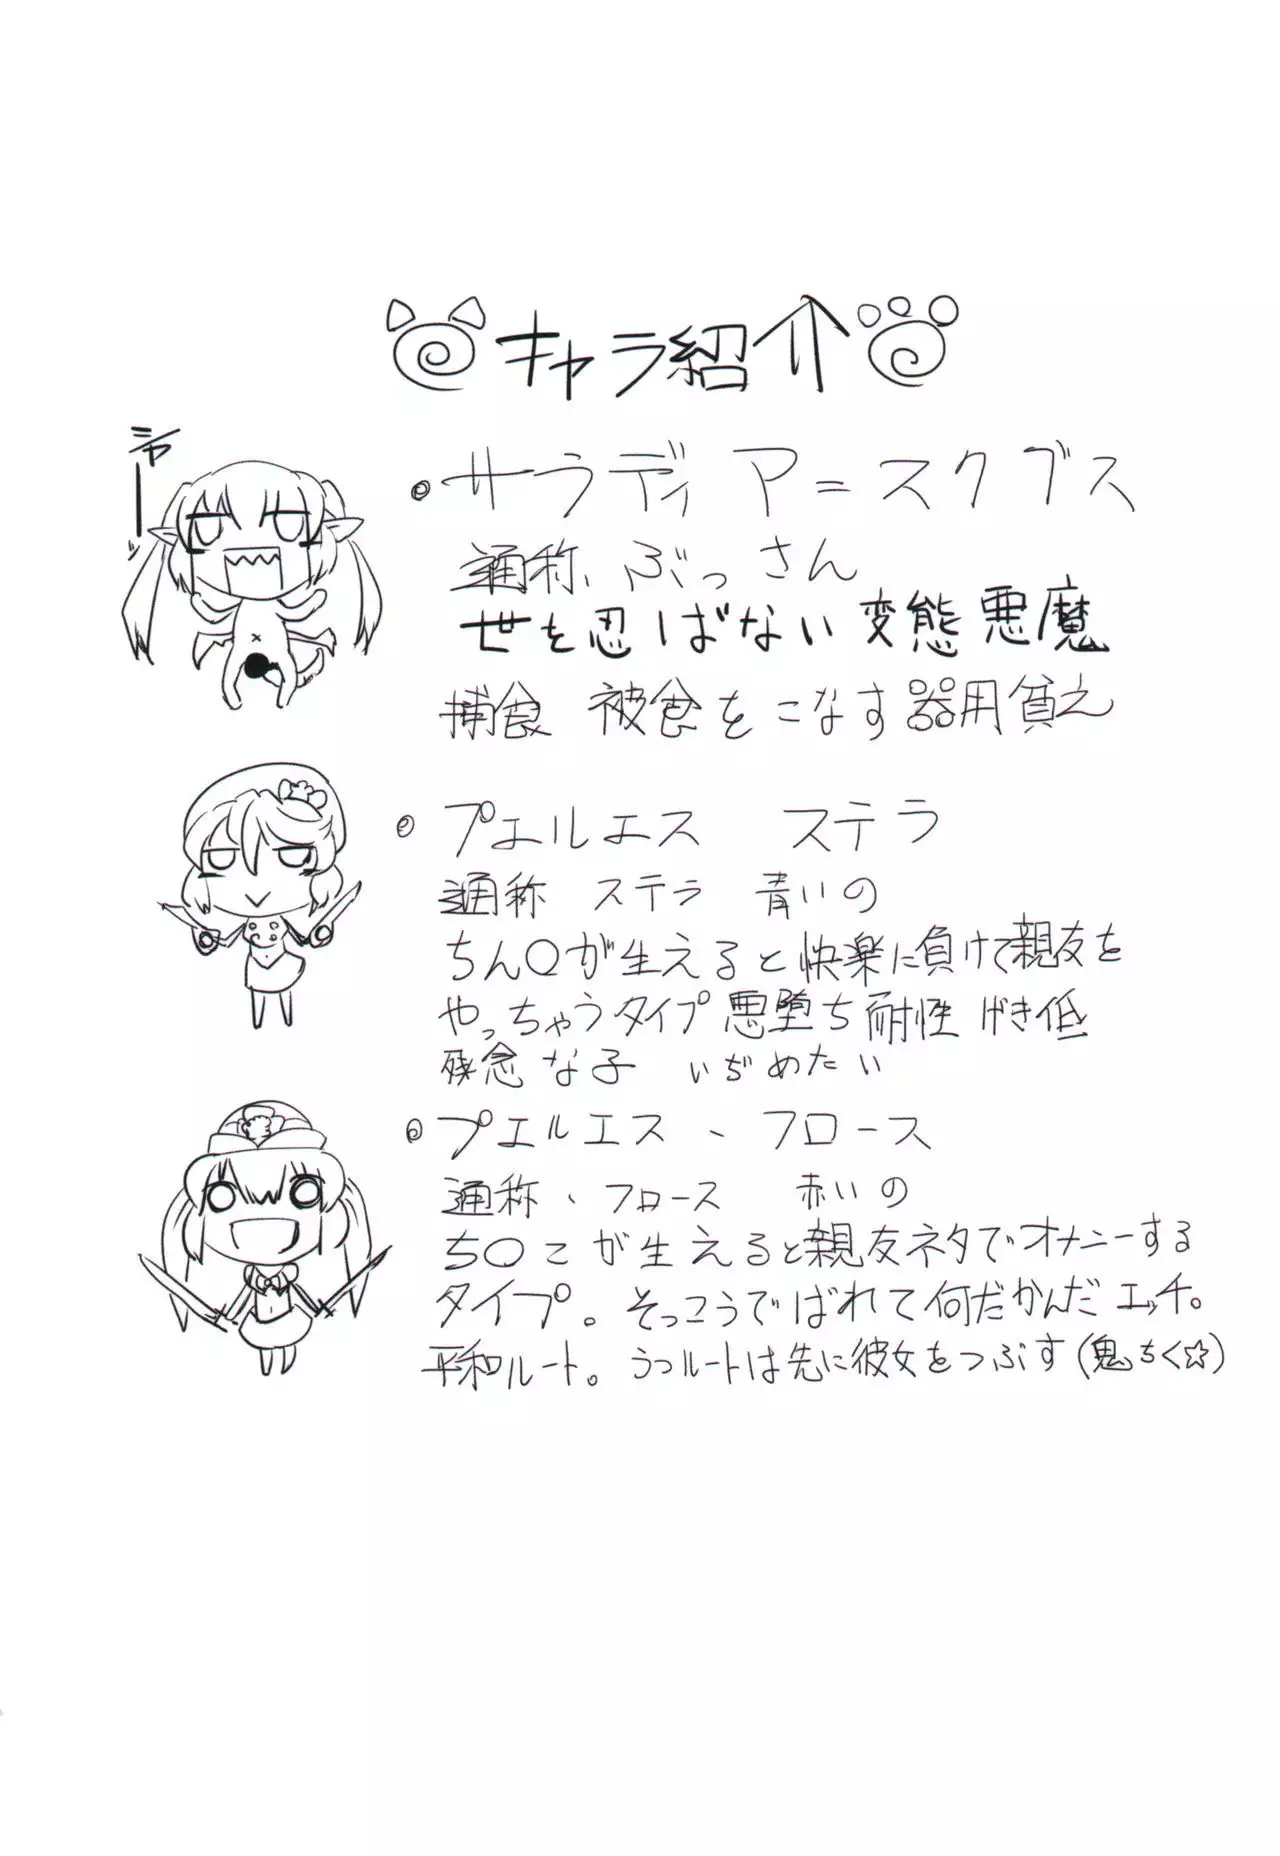 キャラ紹介
シャーッ
サラディア＝スクブス
通称、ぶっさん
世を忍ばない変態悪魔
捕食 被食をこなす器用貧乏
プエルエス ステラ
通称 ステラ 青いの
ちん○が生えると快楽に負けて親友を
やっちゃうタイプ 悪堕ち耐性 げき低
残念な子 いぢめたい
プエルエス、フロース
通称、フロース 赤いの
ち○こが生えると親友ネタでオナニーする
タイプ。そっこうでばれて何だかんだエッチ。
平和ルート。うつルートは先に彼女をつぶす(鬼ちく☆)